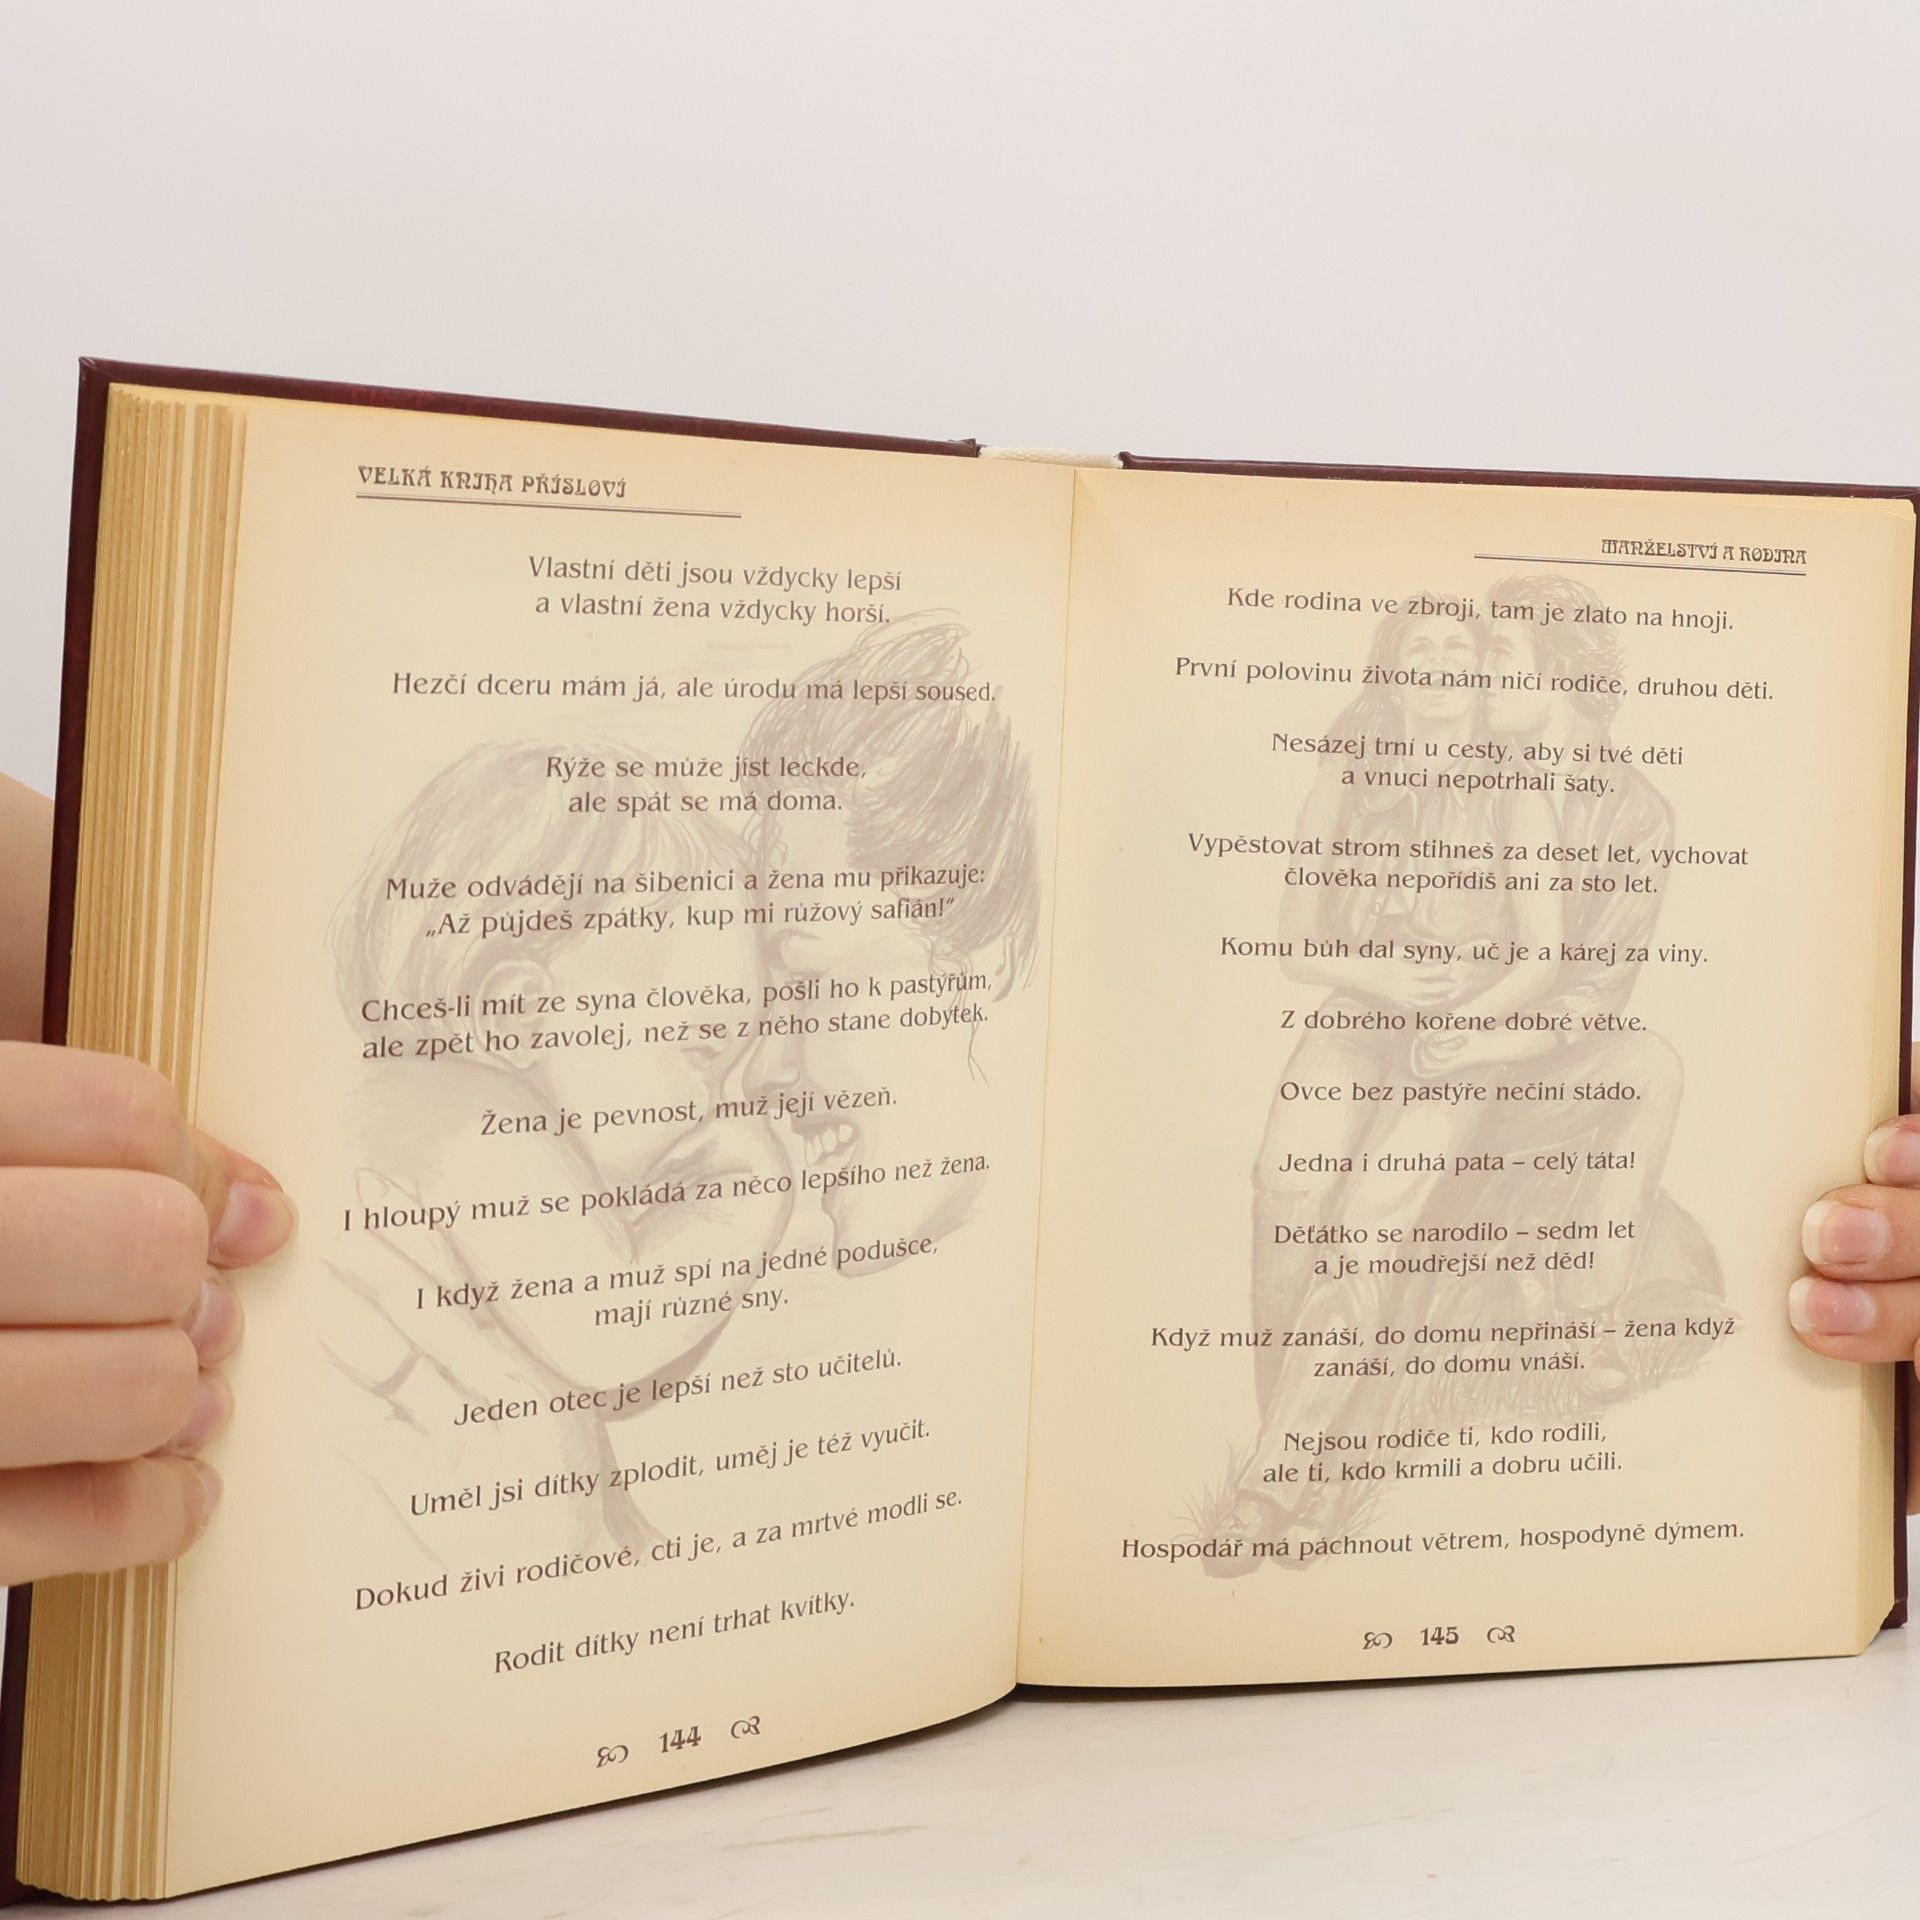 VELKÁ KNIHA PŘÍSLOVÍ
Vlastní děti jsou vždycky lepší
a vlastní žena vždycky horší.
Hezčí dceru mám já, ale úrodu má lepší soused.
Rýže se může jíst leckde,
ale spát se má doma.
Muže odvádějí na šibenici a žena mu přikazuje:
„Až půjdeš zpátky, kup mi růžový safián!“
Chceš-li mít ze syna člověka, pošli ho k pastýřům,
ale zpět ho zavolej, než se z něho stane dobytek.
Žena je pevnost, muž její vězeň.
I hloupý muž se pokládá za něco lepšího než žena.
I když žena a muž spí na jedné podušce,
mají různé sny.
Jeden otec je lepší než sto učitelů.
Uměl jsi dítky zplodit, uměj je též vyučit.
Dokud živi rodičové, cti je, a za mrtvé modli se.
Rodit dítky není trhat kvítky.
144
MANŽELSTVÍ A RODINA
Kde rodina ve zbroji, tam je zlato na hnoji.
První polovinu života nám ničí rodiče, druhou děti.
Nesázej trní u cesty, aby si tvé děti
a vnuci nepotrhali šaty.
Vypěstovat strom stihneš za deset let, vychovat
člověka nepořídíš ani za sto let.
Komu bůh dal syny, uč je a kárej za viny.
Z dobrého kořene dobré větve.
Ovce bez pastýře nečiní stádo.
Jedna i druhá pata – celý táta!
Děťátko se narodilo – sedm let
a je moudřejší než děd!
Když muž zanáší, do domu nepřináší – žena když
zanáší, do domu vnáší.
Nejsou rodiče ti, kdo rodili,
ale ti, kdo krmili a dobru učili.
Hospodář má páchnout větrem, hospodyně dýmem.
145